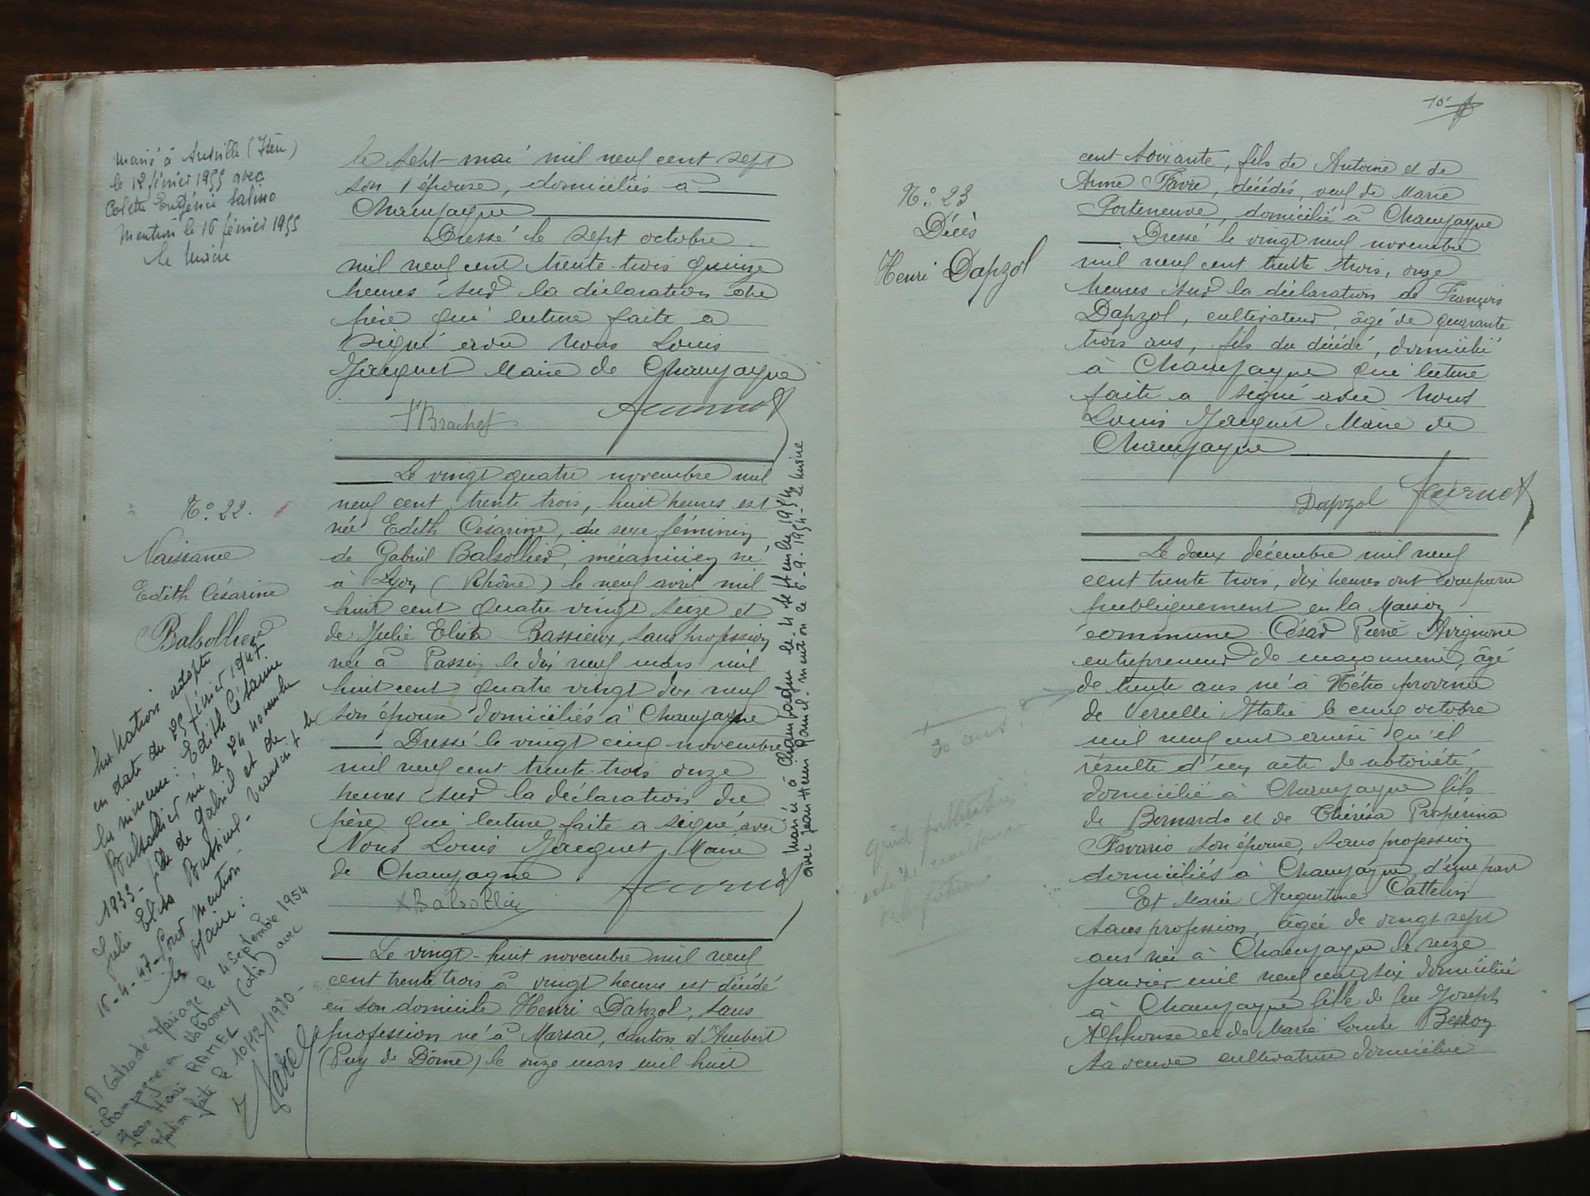 Marié à                (Isère)
le 12 février 1955 avec
Colette Eugénie
Mention le 16 février 1955
le Maire
le sept mai mil neuf cent sept
son épouse, domiciliés à
Champagne
Dressé le sept octobre
mil neuf cent trente trois quinze
heures sur la déclaration du
père qui lecture faite a
signé avec Nous Louis
Jacquet Maire de Champagne
Brachet
N° 22.
Naissance
Edith Césarine
Balsollier
Le vingt quatre novembre mil
neuf cent trente trois, huit heures est
née Edith Césarine, du sexe féminin
de Gabriel Balsollier, mécanicien né
à Lyon (Rhône) le neuf avril mil
huit cent quatre vingt seize et
de Julie Elisa Bassieux, sans profession
née à Passin le dix neuf mars mil
huit cent quatre vingt dix neuf
son épouse domiciliés à Champagne
Dressé le vingt cinq novembre
mil neuf cent trente trois onze
heures sur la déclaration du
père qui lecture faite a signé avec
Nous Louis Jacquet Maire
de Champagne
Balsollier
adopté
en date du 25 février 1947.
Edith Césarine
Balsollier née le 24 novembre
1933 - fille de Gabriel et de
Julie Elisa Bassieux -
16-4-47 - Pour mention
le Maire :
Mariage le 4 Septembre 1954
à Champagne en Valromey (Ain) avec
Jean Henri RAMEL
faite le 10/12/1980 -
Mariée à Champagne le 4 septembre 1954
avec Jean Henri Ramel - mention le 6-9-1954 - Le Maire
Le vingt-huit novembre mil neuf
cent trente trois à vingt heures est décédé
en son domicile Henri Dapzol, sans
profession né à Marsac, canton d'Ambert
(Puy de Dôme) le onze mars mil huit
10
N° 23
Décès
Henri Dapzol
cent soixante, fils de Antoine et de
Anne Favre, décédés, veuf de Marie
Porteneuve, domicilié à Champagne
Dressé le vingt neuf novembre
mil neuf cent trente trois, onze
heures sur la déclaration de François
Dapzol, cultivateur, âgé de quarante
trois ans, fils du décédé, domicilié
à Champagne qui lecture
faite a signé avec Nous
Louis Jacquet Maire de
Champagne
Dapzol
Le deux décembre mil neuf
cent trente trois, dix heures ont comparu
publiquement en la Maison
commune César Pierre Avignone
entrepreneur de maçonnerie, âgé
de trente ans né à Nétro province
de Vercelli Italie le cinq octobre
mil neuf cent              qu'il
résulte d'un acte de notoriété,
domicilié à Champagne fils
de Bernardo et de Thérésa Prosperina
Favario son épouse, sans profession
domiciliés à Champagne, d'une part
Et Marie Augustine Cattelin
sans profession, âgée de vingt sept
ans née à Champagne le seize
janvier mil neuf cent six domiciliée
à Champagne fille de feu Joseph
Alphonse et de Marie Louise Besson
sa veuve cultivatrice domiciliée
30 ans ?